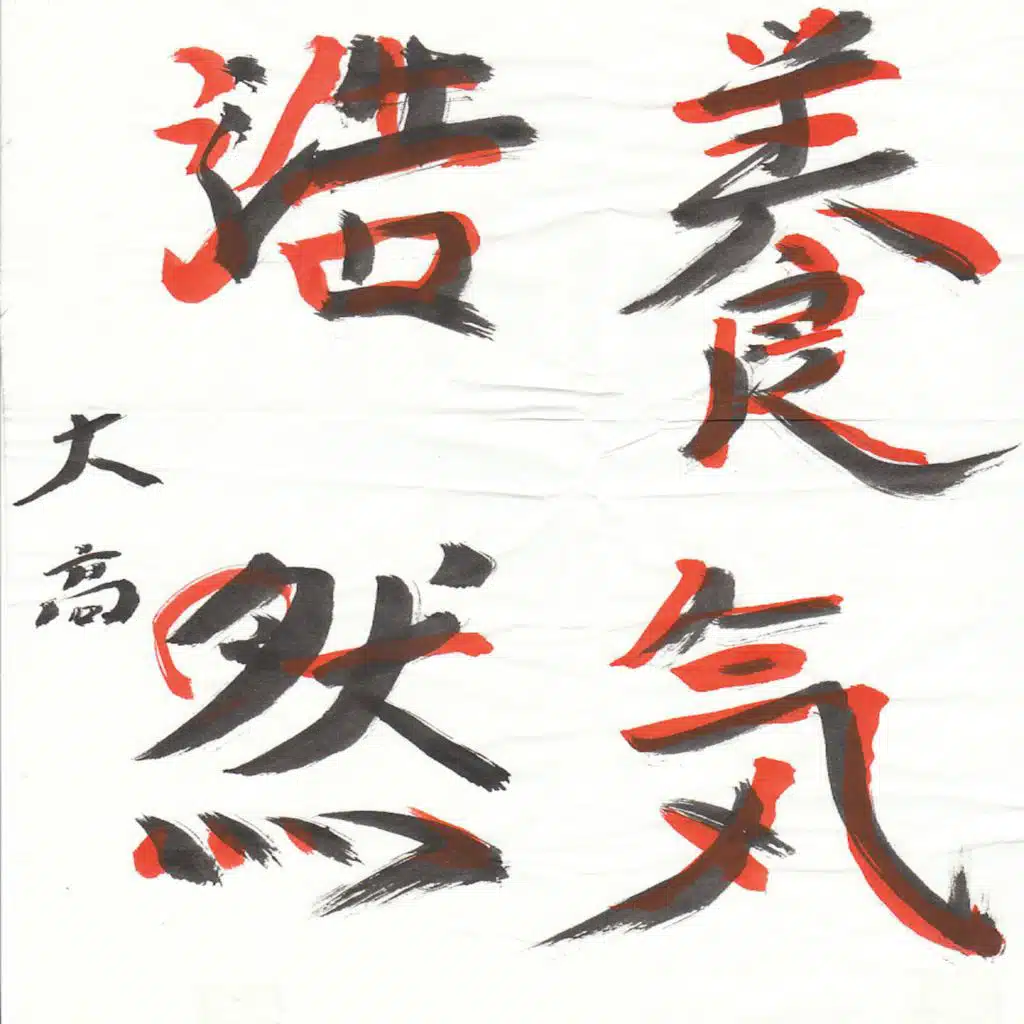 養気
浩然
大高